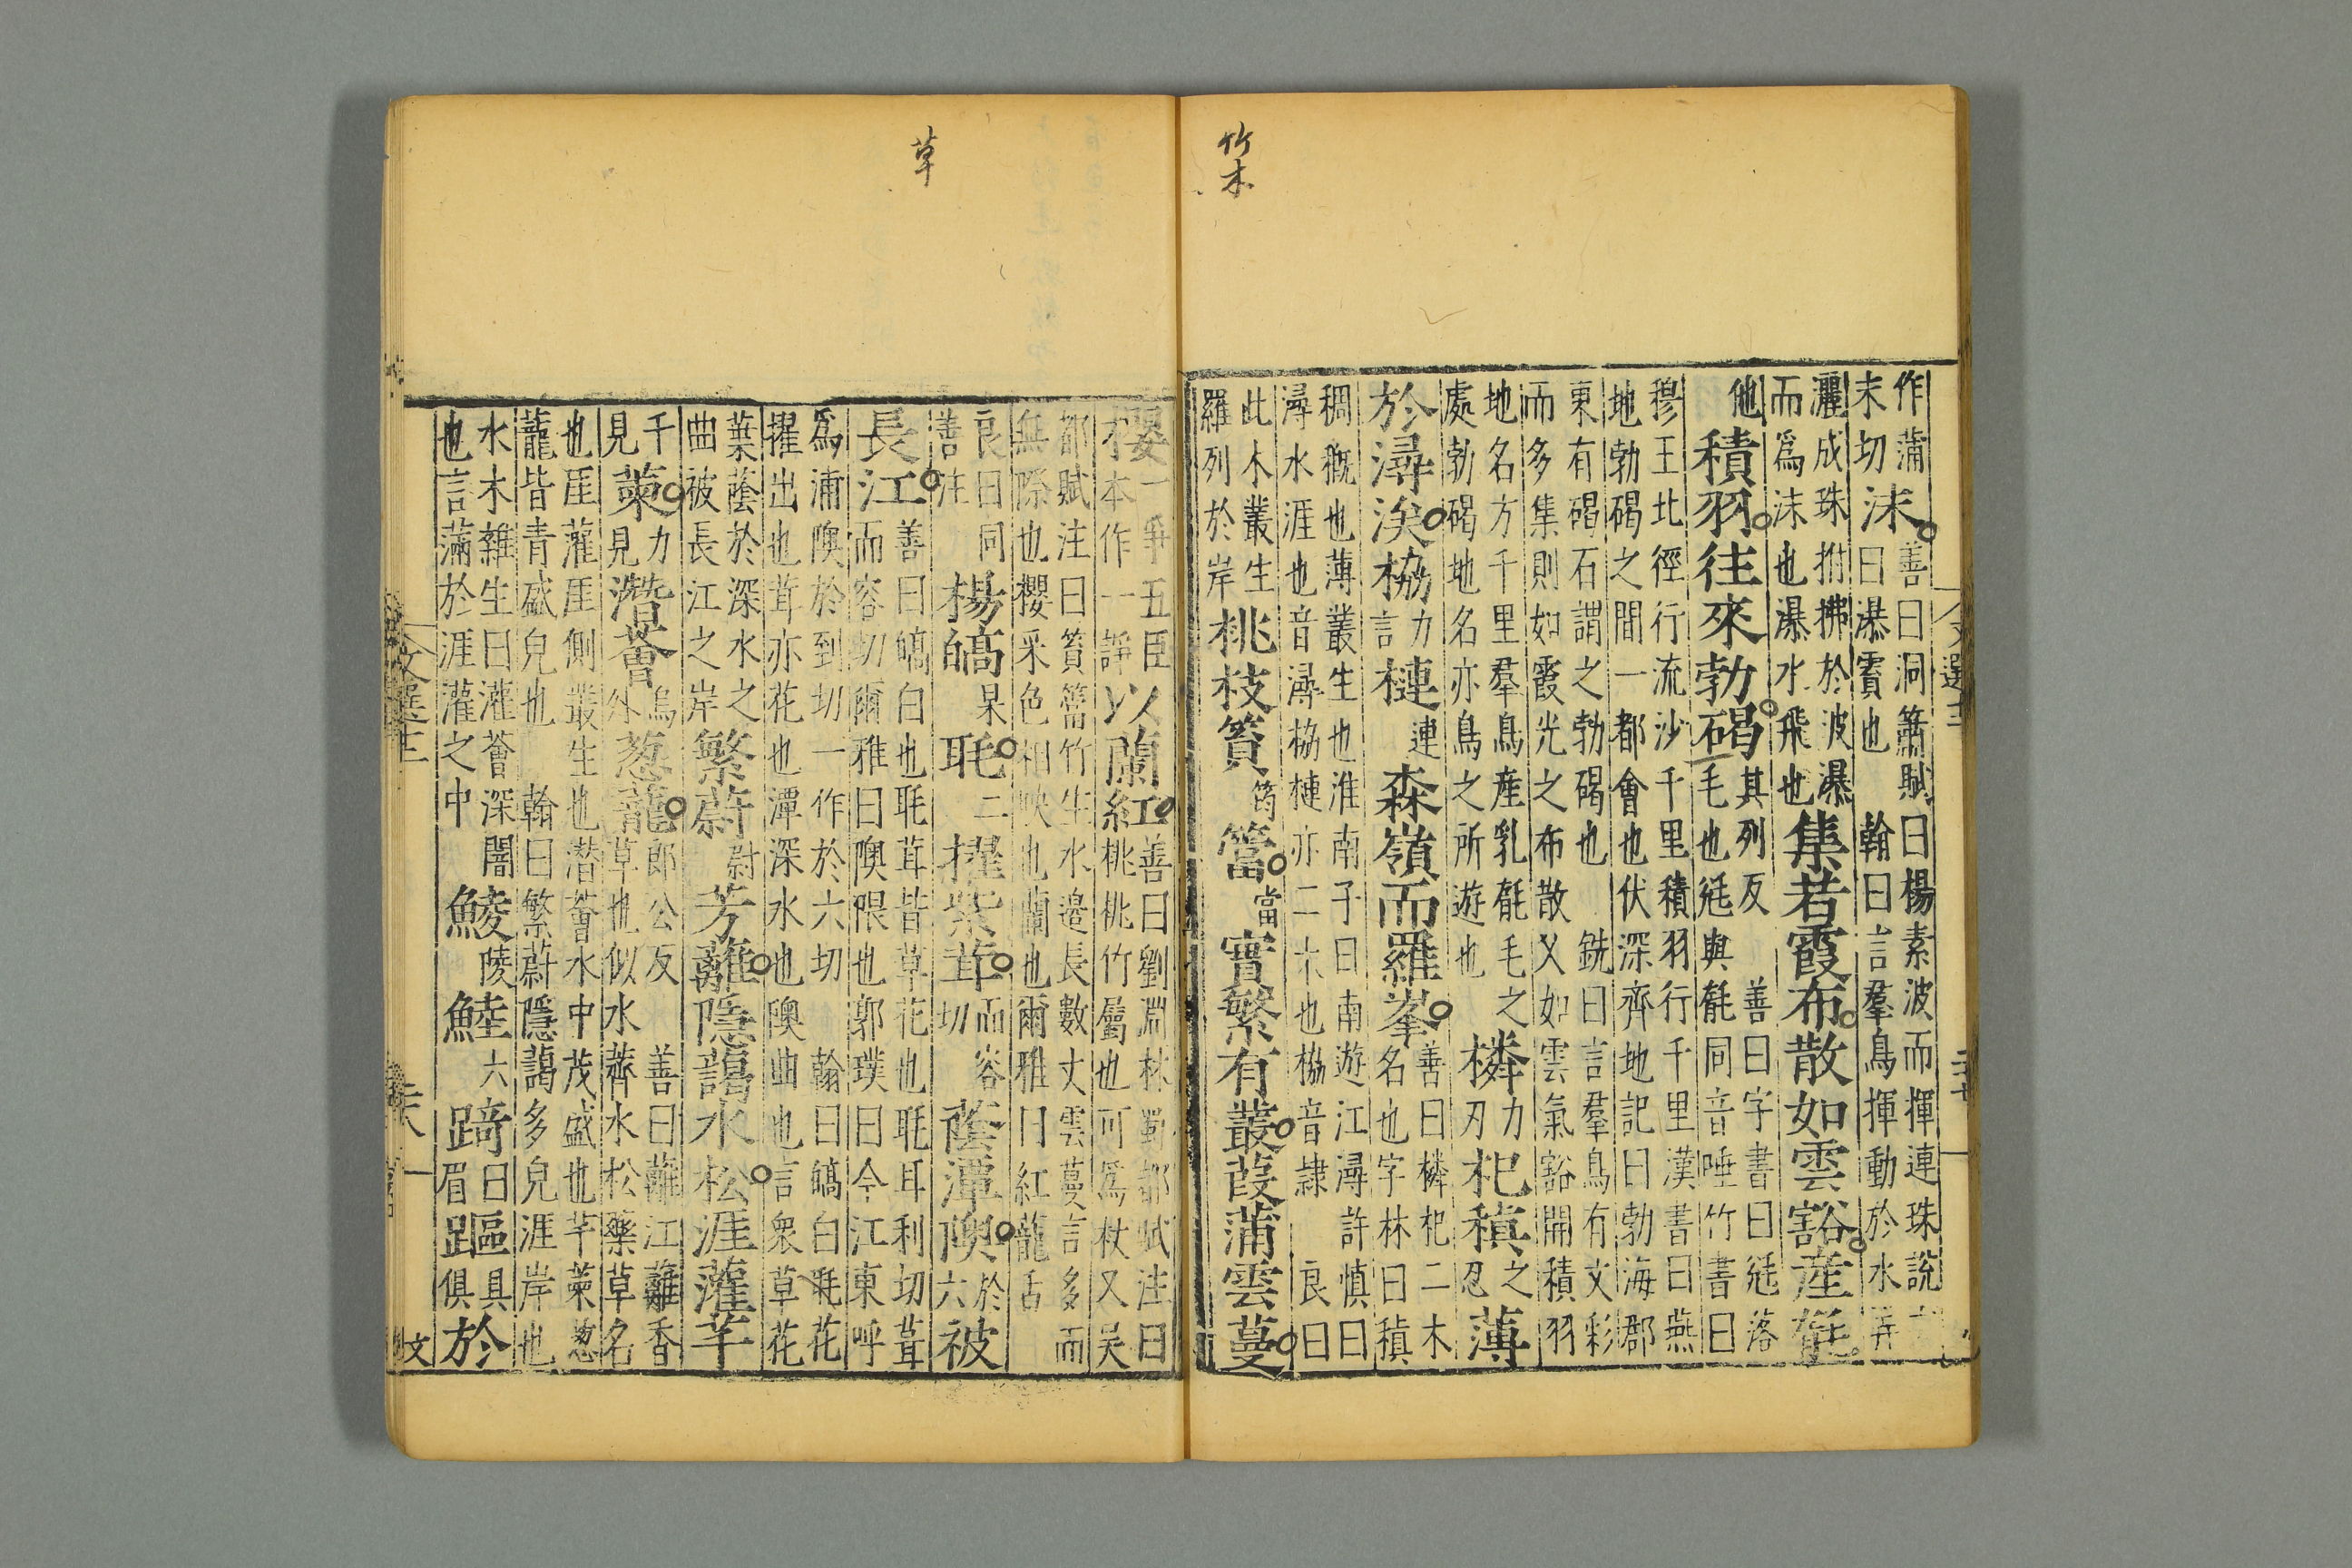 竹木
作蒲末切沫善曰洞簫賦曰楊素波而揮連珠說文曰瀑霣也 翰曰言羣鳥揮動於水弄
灑成珠拊拂於波瀑而爲沫也瀑水飛也集若霞布散如雲豁産毻
他積羽往來勃碣其列反 善曰字書曰毤落毛也毤與毻同音唾竹書曰
穆王北徑行流沙千里積羽行千里漢書曰燕地勃碣之間一都會也伏深齊地記曰勃海郡
東有碣石謂之勃碣也 銑曰言羣鳥有文彩而多集則如霞光之布散又如雲氣豁開積羽
地名方千里羣鳥産乳毻毛之處勃碣地名亦鳥之所遊也橉力刃杞稹之忍薄
於潯涘栛力言槤連森嶺而羅峯善曰橉杞二木名也字林曰稹
稠穊也薄叢生也淮南子曰南遊江潯許慎曰潯水涯也音潯栛槤亦二木也栛音隸 良曰
此木叢生羅列於岸桃枝篔筠簹當實繁有叢葭蒲雲蔓
文選十二
二十七
草
櫻一爭五臣本作一諍以蘭紅善曰劉淵林蜀都賦注曰桃桃竹屬也可爲杖又吳
都賦注曰篔簹竹生水邉長數丈雲蔓言多而無際也櫻采色相映也蘭也爾雅曰紅蘢舌
良曰同善注楊皜杲毦二擢紫茸而容切蔭潭隩於六被
長江善曰皜白也毦茸皆草花也毦耳利切茸而容切爾雅曰隩隈也郭璞曰今江東呼
爲浦隩於到切一作於六切 翰曰皜白毦花擢出也茸亦花也潭深水也隩曲也言衆草花
葉蔭於深水之曲被長江之岸繁蔚尉芳蘺隱藹水松涯灌芊
千見萰力見潛薈烏外葱蘢郎公反 善曰蘺江蘺香草也似水薺水松藥草名
也厓灌厓側叢生也潛薈水中茂盛也芊萰葱蘢皆青盛皃也 翰曰繁蔚隱藹多皃涯岸也
水木雜生曰灌薈深闇也言滿於涯灌之中鯪陵鯥六踦曰眉𨄅具俱於
文選十二
二十八
文